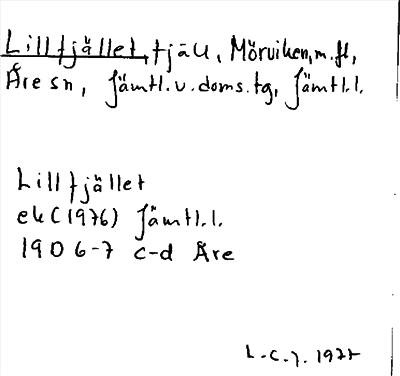 Lillfjället, fjäll, Mörviken, m.fl,
Åre sn, Jämtl.v.doms.tg, Jämtl.l.
Lillfjället
ek (1976) Jämtl.l.
1906-7 c-d Åre
L.C.J. 1977